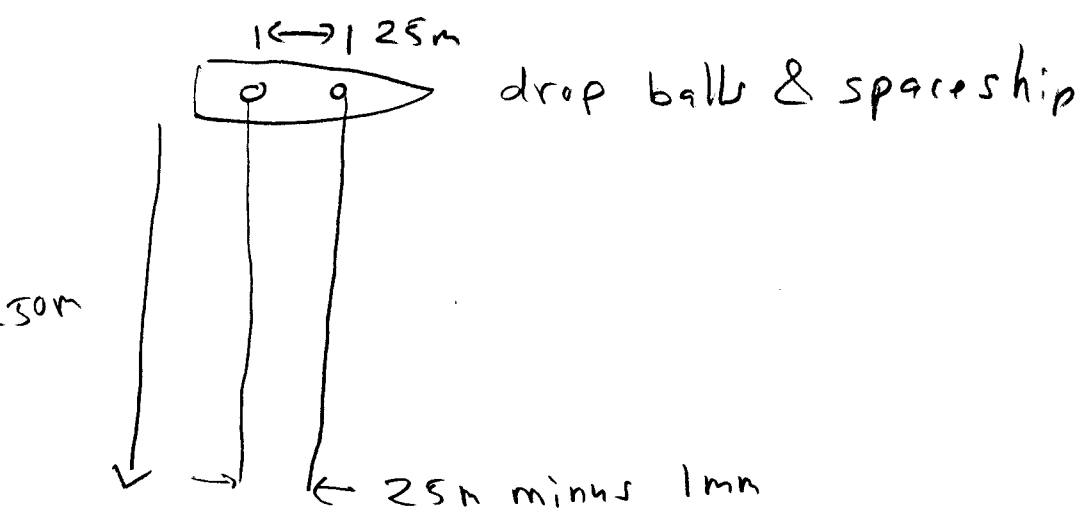 25m
drop balls & spaceship
25m minus 1mm